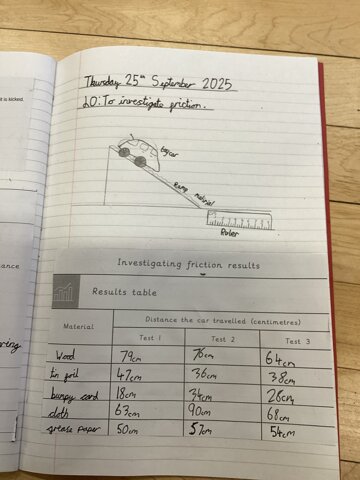 it is kicked.
Thursday 25th September 2025
LO: To investigate friction.
toy car
Ramp material
Ruler
Investigating friction results
Results table
Material
Distance the car travelled (centimetres)
Test 1 Test 2 Test 3
Wood 79cm 76cm 64cm
tin foil 47cm 36cm 38cm
bumpy card 18cm 34cm 26cm
cloth 63cm 90cm 68cm
grease paper 50cm 57cm 54cm